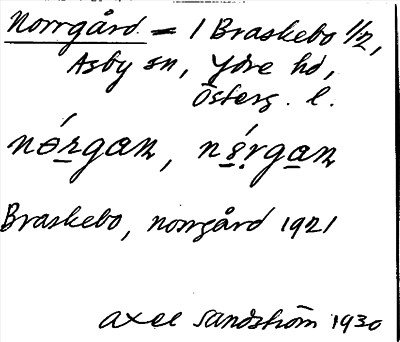 Norrgård = 1 Braskebo 1/2,
Asby sn, Ydre hd,
Österg. l.
nórgan, nórgan
Braskebo, norrgård 1921
Axel Sandström 1930